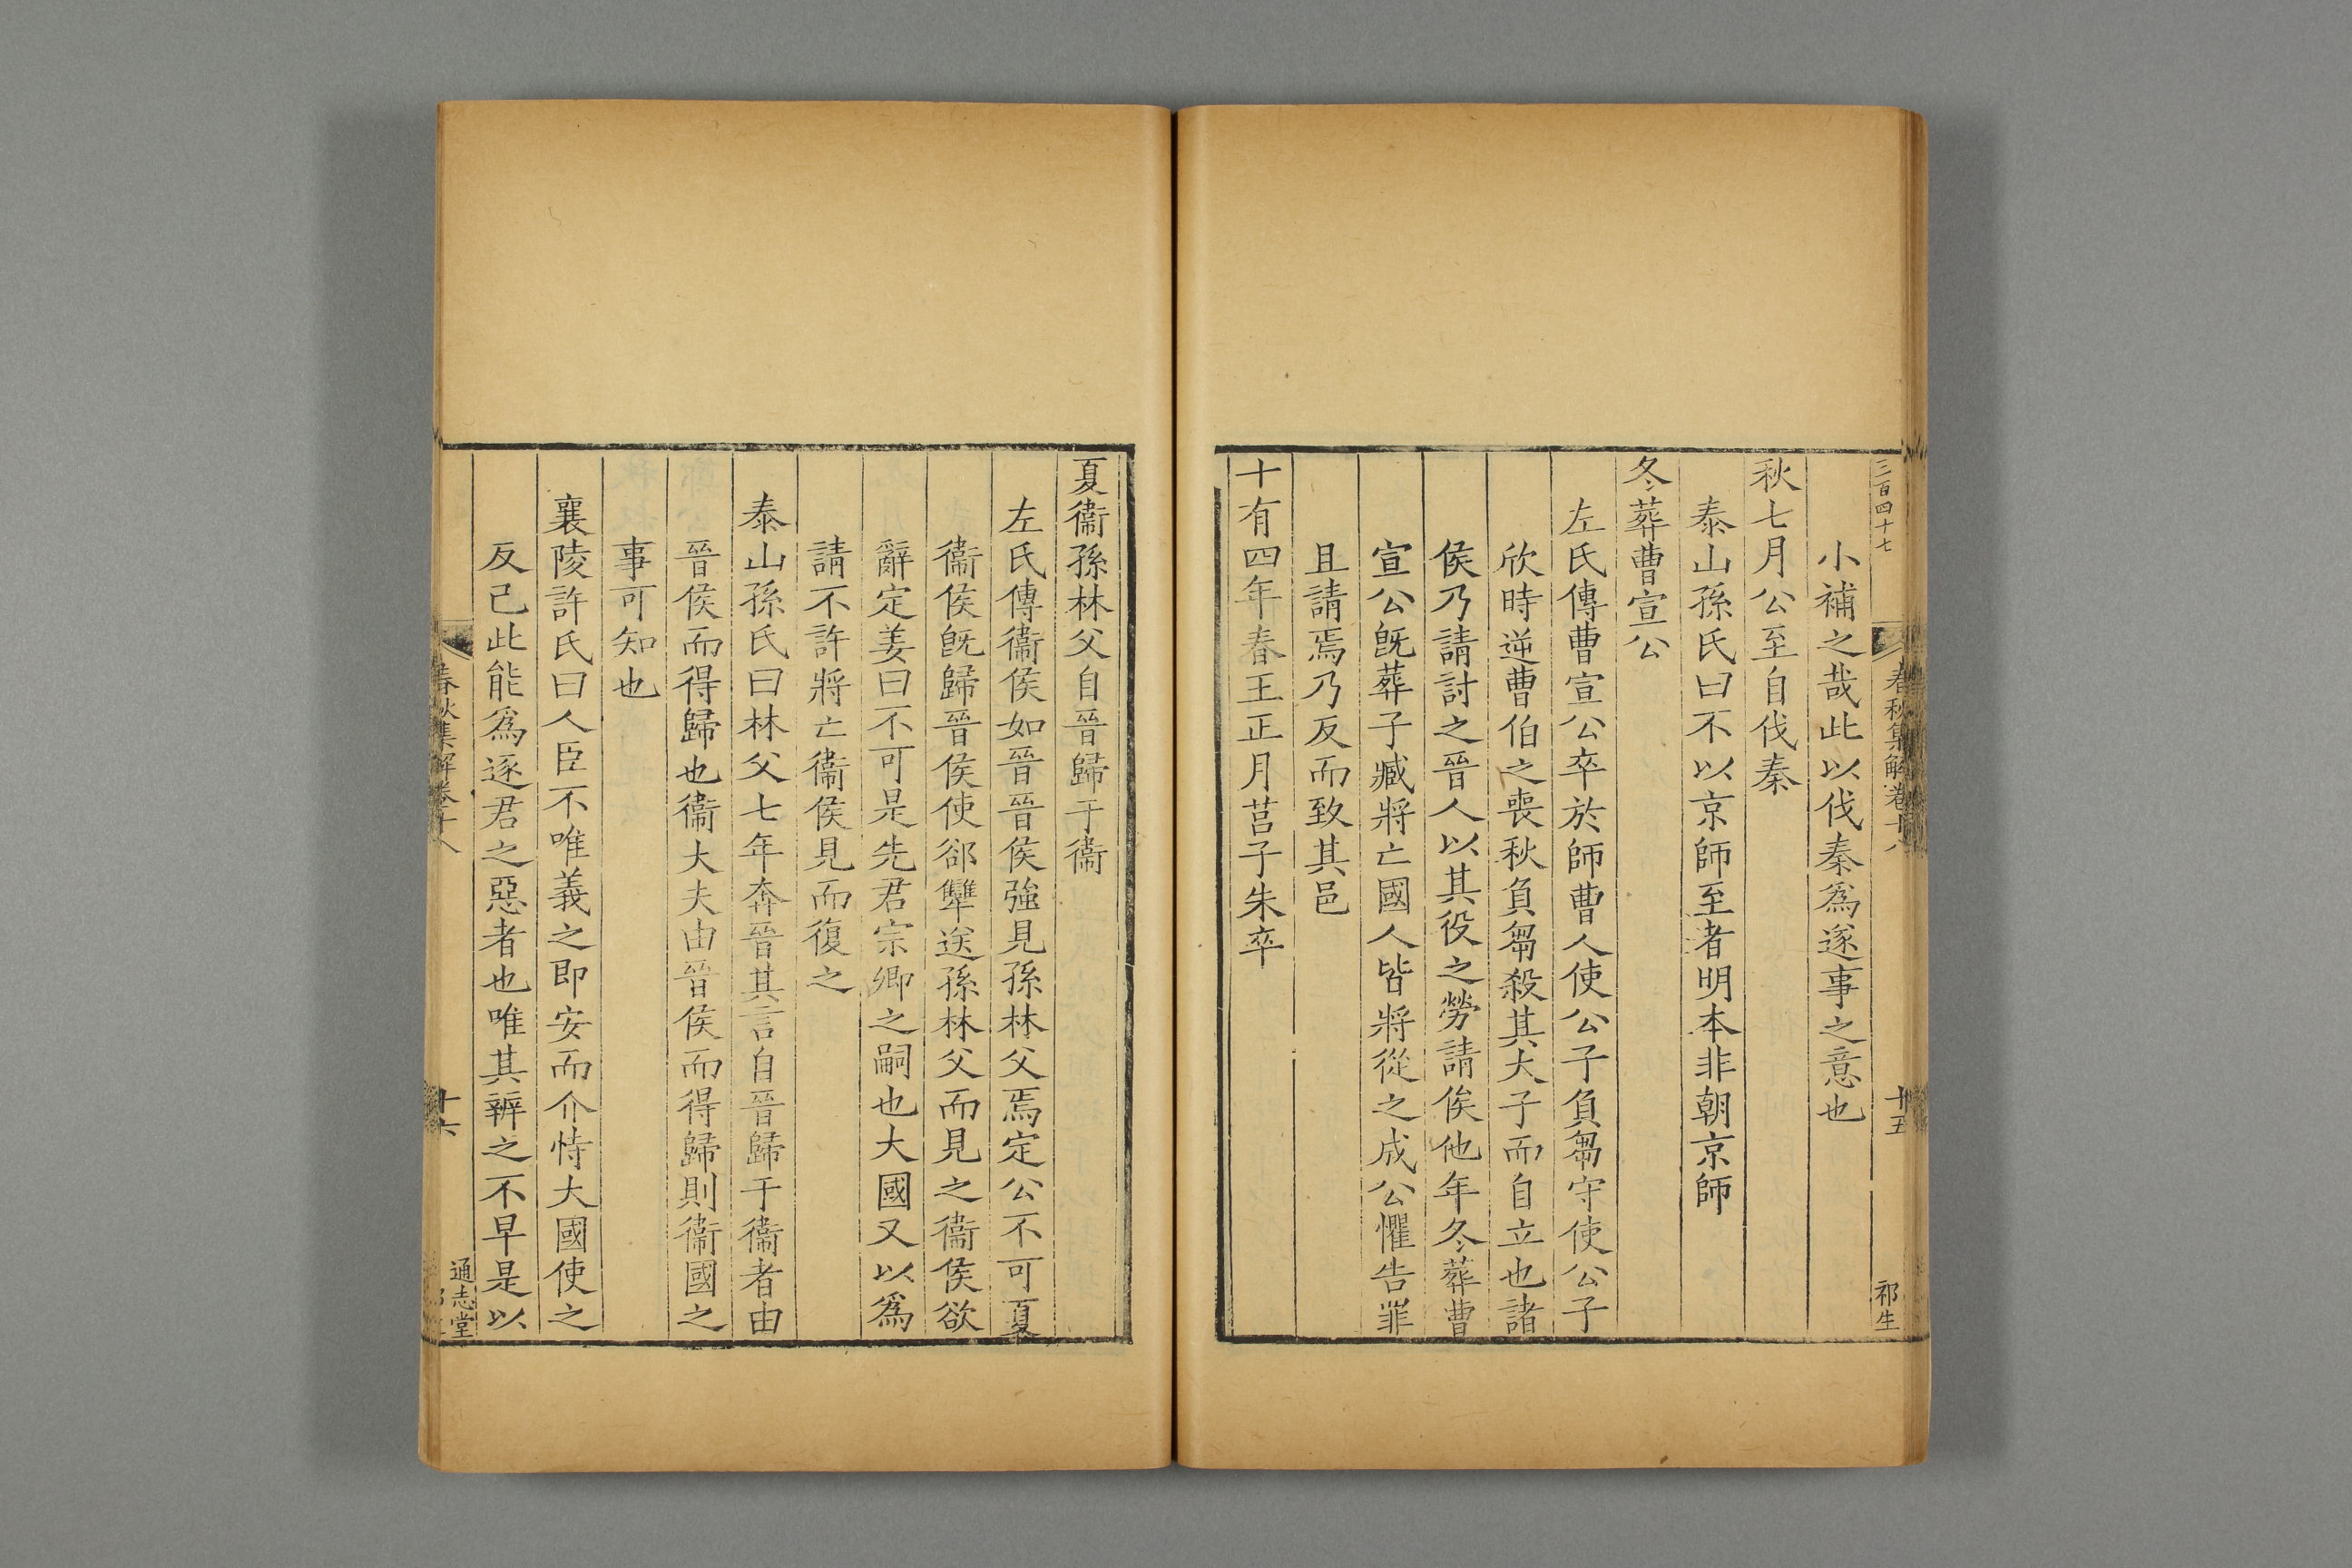 三百四十七
春秋集解卷十八
十五
祁生
小補之哉此以伐秦爲遂事之意也
秋七月公至自伐秦
泰山孫氏曰不以京師至者明本非朝京師
冬葬曹宣公
左氏傳曹宣公卒於師曹人使公子負芻守使公子
欣時逆曹伯之喪秋負芻殺其大子而自立也諸
侯乃請討之晉人以其役之勞請俟他年冬葬曹
宣公旣葬子臧將亡國人皆將從之成公懼告罪
且請焉乃反而致其邑
十有四年春王正月莒子朱卒
夏衞孫林父自晉歸于衞
左氏傳衞侯如晉晉侯強見孫林父焉定公不可夏
衞侯旣歸晉侯使郤犫送孫林父而見之衞侯欲
辭定姜曰不可是先君宗卿之嗣也大國又以爲
請不許將亡衞侯見而復之
泰山孫氏曰林父七年奔晉其言自晉歸于衞者由
晉侯而得歸也衞大夫由晉侯而得歸則衞國之
事可知也
襄陵許氏曰人臣不唯義之即安而介恃大國使之
反己此能爲逐君之惡者也唯其辨之不早是以
春秋集解卷十八
十六
通志堂